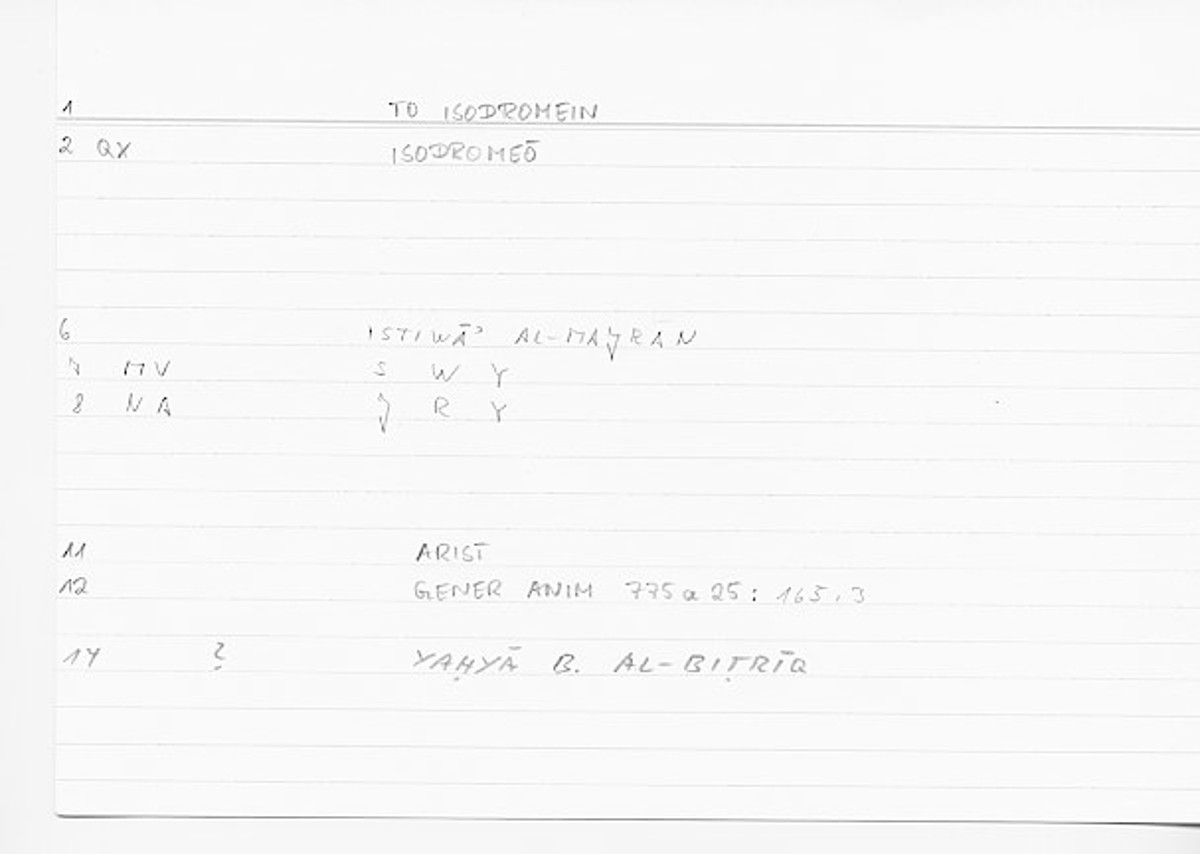 1 TO ISODROMEIN
2 QX ISODROMEŌ
6 ISTIWĀʾ AL-MAǧRAN
7 MV S W Y
8 NA ǧ R Y
11 ARIST
12 GENER ANIM 775a25: 165,3
14 ? YAḤYĀ B. AL-BIṬRĪQ